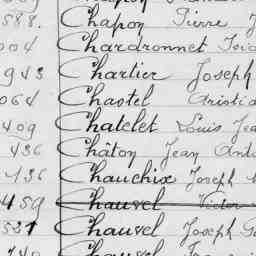 588. Chapon Pierre
004 Chardronnet Isid
943 Chartier Joseph
064 Chastel Aristid
409 Chatelet Louis Jea
436 Châton Jean Anto
136 Chauchix Joseph
459 Chauvel Victor
527 Chauvel Joseph
Chauvel